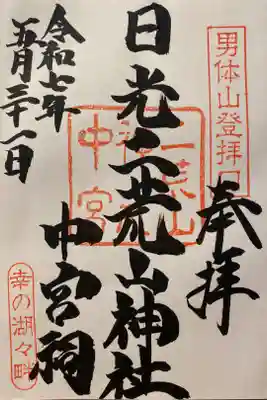 男体山登拝口
奉拝
日光二荒山神社
中宮祠
二荒山
中宮
令和七年
五月三十一日
幸の湖々畔